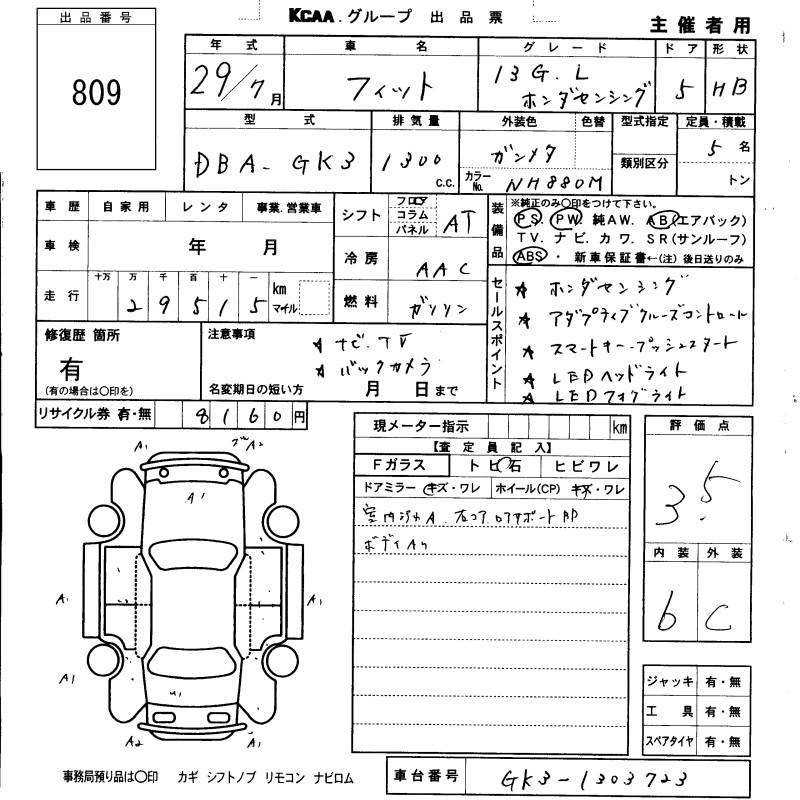 出品番号
809
KCAA.グループ 出品票
主催者用
年式 車名 グレード ドア 形状
29/7月 フィット 13G.L ホンダセンシング 5 HB
型式 排気量 外装色 色替 型式指定 定員・積載
DBA-GK3 1300 c.c. ガンメタ 5名
カラーNo. NH880M 類別区分 トン
車歴 自家用 レンタ 事業.営業車
車検 年 月
走行 十万 万 千 百 十 一 km マイル
2 9 5 1 5
シフト フロア コラム パネル AT
冷房 AAC
燃料 ガソリン
装備品
※純正のみ〇印をつけて下さい。
PS PW 純AW. AB(エアバック)
TV. ナビ. カワ. SR(サンルーフ)
ABS ・ 新車保証書←(注)後日送りのみ
セールスポイント
★ ホンダセンシング
★ アダプティブクルーズコントロール
★ スマートキープッシュスタート
★ LEDヘッドライト
★ LEDフォグライト
修復歴 箇所
有
(有の場合は〇印を)
注意事項
★ ナビ.TV
★ バックカメラ
名変期日の短い方 月 日まで
リサイクル券 有・無 8160円
現メーター指示 km
【査定員記入】
Fガラス トビ石 ヒビワレ
ドアミラー キズ・ワレ ホイール(CP) キズ・ワレ
ボディAウ
評価点
3.5
内装 外装
b C
ジャッキ 有・無
工具 有・無
スペアタイヤ 有・無
A1 A2
A1
A1 A1
A1
U1
A2 A2
事務局預り品は〇印 カギ シフトノブ リモコン ナビロム
車台番号 GK3-1303723